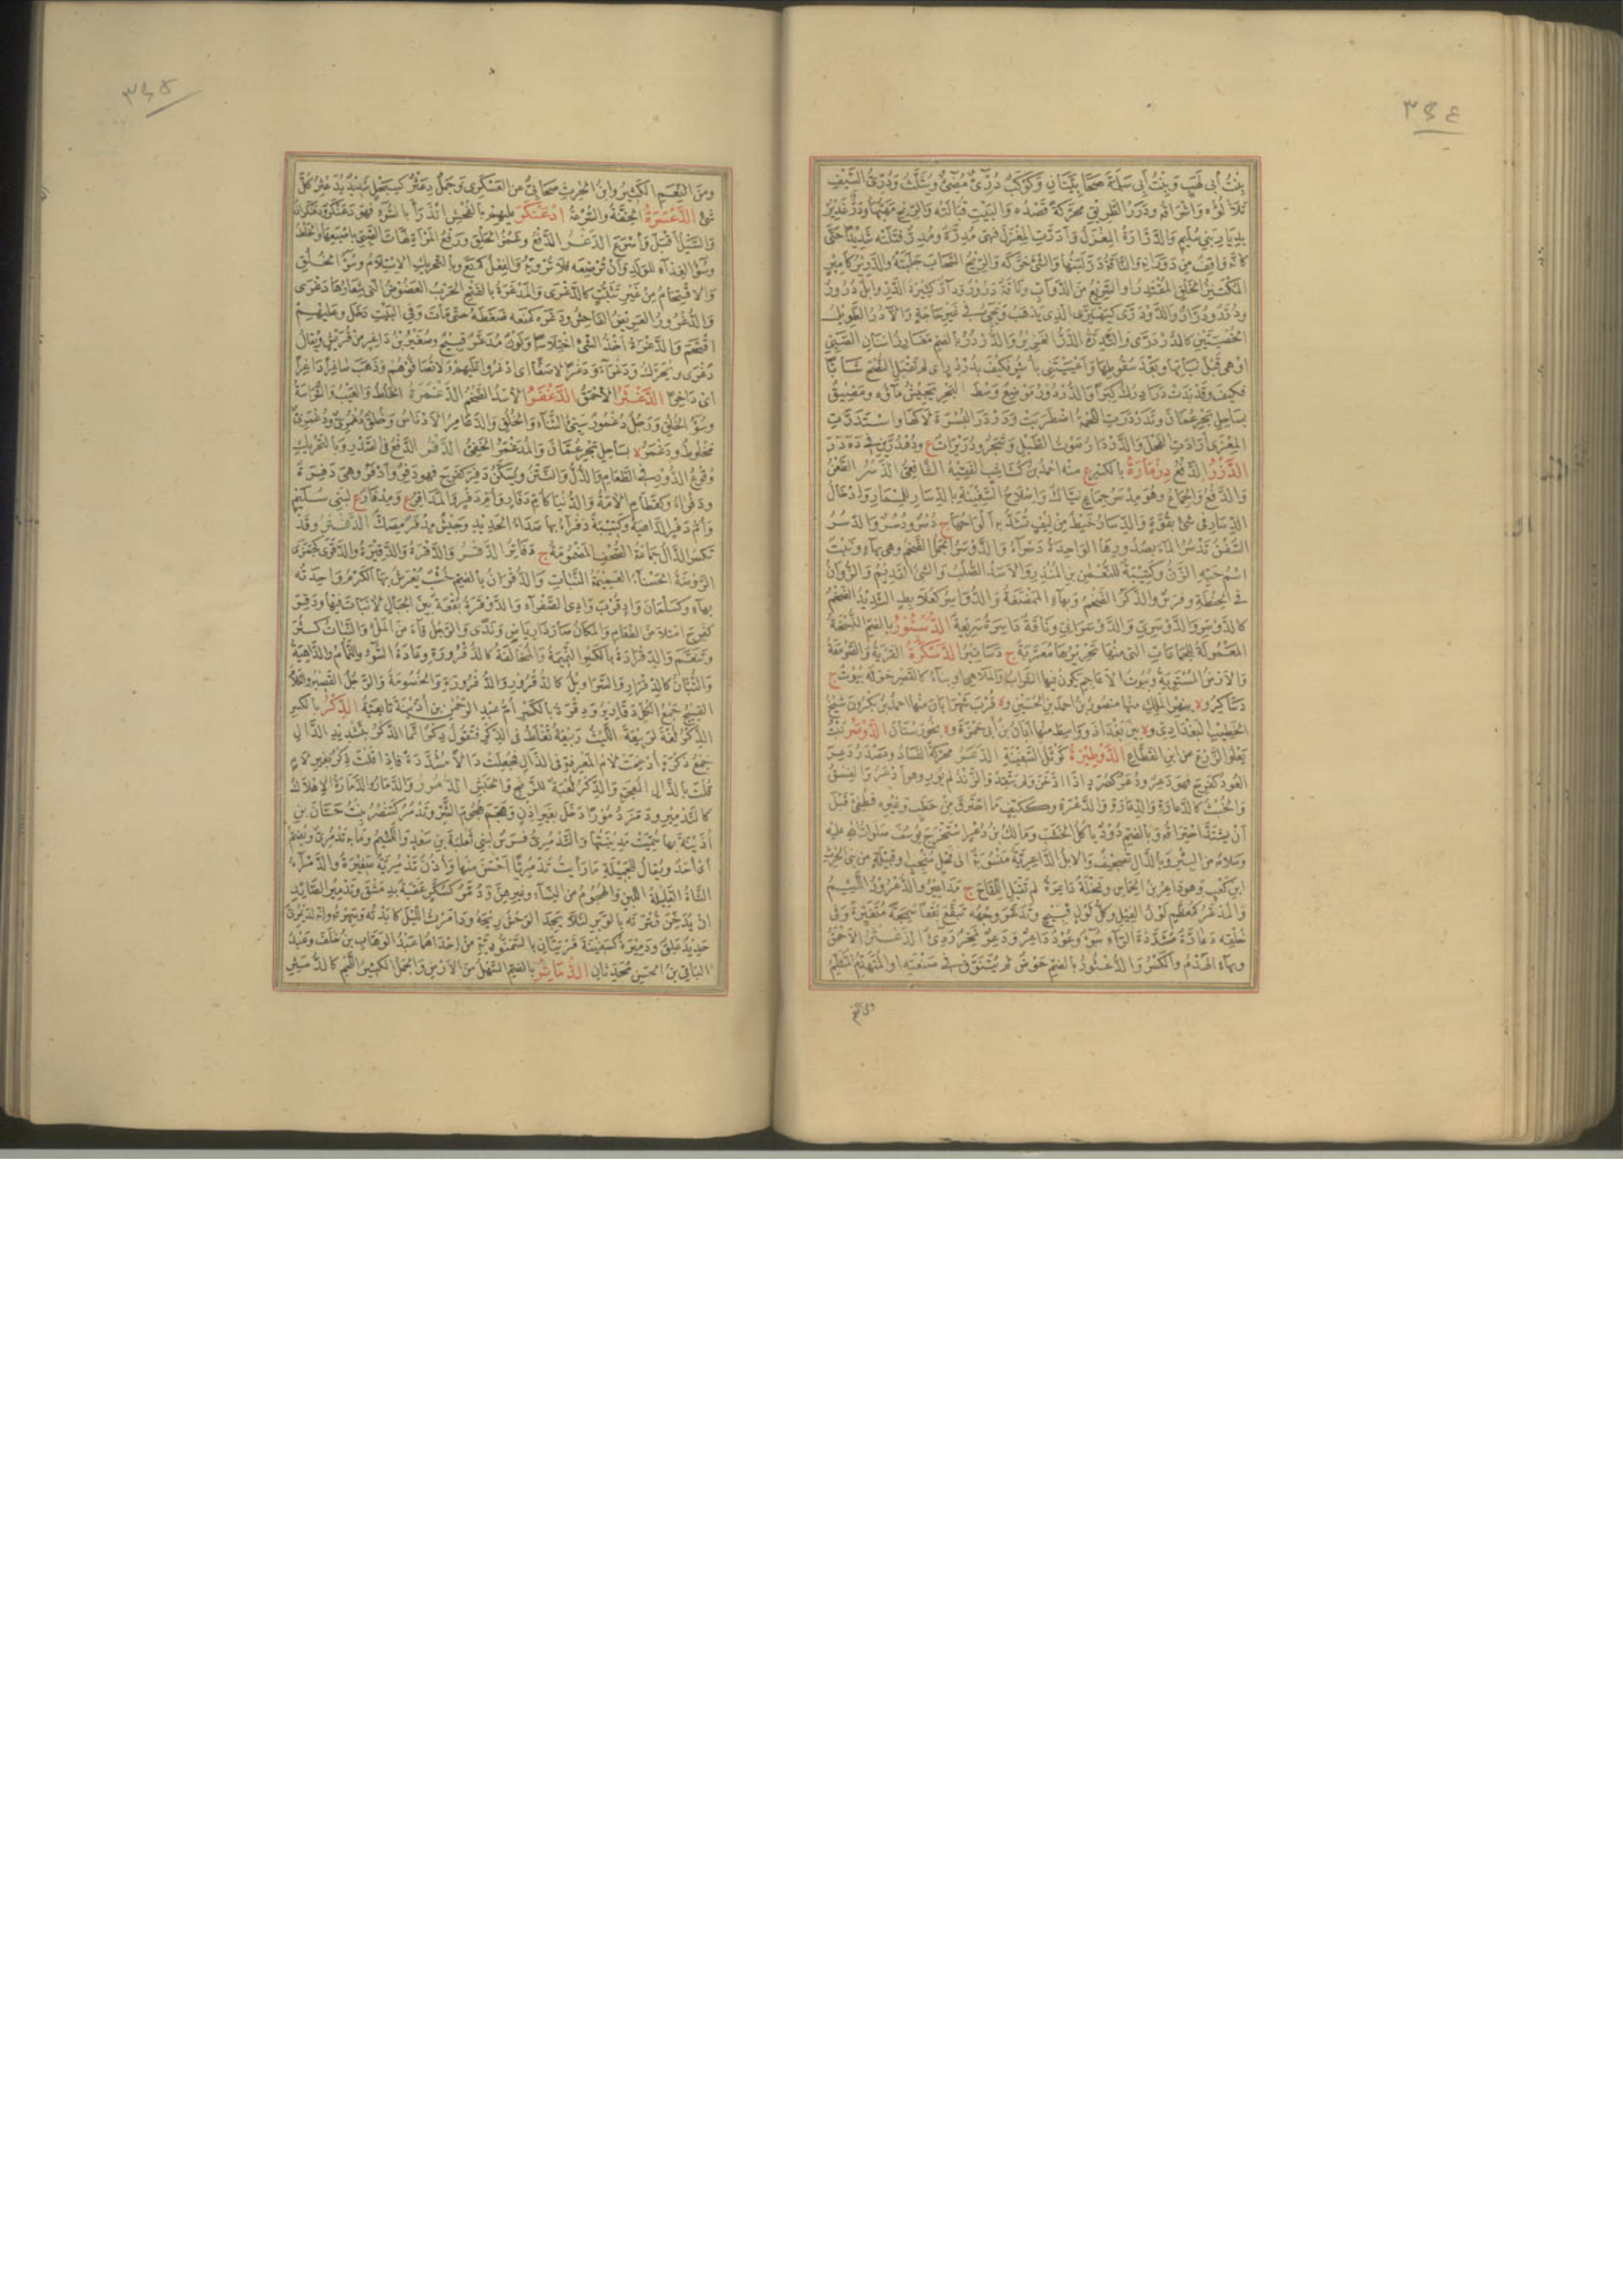 ٣٤٤
بِنْتُ أَبِى لَهَبٍ وَبِنْتُ أَبِى سَلَمَةَ صَحَابِيَّتَانِ وَكَوْكَبٌ دُرِّىٌّ مُضِىْءٌ وَيُثَلَّثُ وَدُرِّىُّ السَّيْفِ
تَلَأْلُؤُه وَاِشْرَاقُه وَدَرَرُ الطَّرِيْقِ مُحَرَّكَةً قَصْدُه وَالبَيْتِ قُبَالَتُه وَالرِّيْحِ مَهَبُّهَا وَدَرٌّ غَدِيْرٌ
بِدِيَارِ بَنِى سُلَيْمٍ وَالدَّرَّارَةُ المِغْزَلُ وَاَدَرَّتِ المِغْزَلَ فَهِىَ مُدِرَّةٌ وَمُدِرٌّ فَتَلَتْه شَدِيْدًا حَتَّى
كَاَنَّه وَاقِفٌ مِنْ دَوَرَانِه وَالنَّاقَةَ دَرَّ لَبَنُهَا وَالشَّىْءَ حَرَّكَه وَالرِّيْحُ السَّحَابَ حَلَبَتْهُ وَالدَّرِيْرُ كَأَمِيْرٍ
المُكْتَنِزُ الخَلْقِ المُقْتَدِرُ اَوِ السَّرِيْعُ مِنَ الدَّوَابِّ وَنَاقَةٌ دَرُوْرٌ وَدَارٌّ كَثِيْرَةُ الدَّرِّ وَاِبِلٌ دُرُوْرٌ
وَدُرَّرٌ وَدُرَّارٌ وَالدَّوْدَرَّى كَيَهْيَرَّى الَّذِى يَذْهَبُ وَيَجِىْءُ فِى غَيْرِ حَاجَةٍ وَالآدَرُ الطَّوِيْلُ
الخُصْيَتَيْنِ كَالدَّرْدَرَّى وَالتَّدِرَّةُ الدَّرُّ الغَزِيْرُ وَالدُّرْدُرُ بِالضَّمِّ مَغَارِزُ اَسْنَانِ الصَّبِىِّ
اَوْ هِىَ قَبْلَ نَبَاتِهَا وَبَعْدَ سُقُوْطِهَا وَاَعْيَيْتَنِى بِاُشُرٍ فَكَيْفَ بِدُرْدُرٍ اَىْ لَمْ تَقْبَلِ النُّصْحَ شَابًّا
فَكَيْفَ وَقَدْ بَدَتْ دَرَادِرُكَ كِبَرًا وَالدُّرْدُوْرُ مَوْضِعٌ وَسْطَ البَحْرِ يَجِيْشُ مَاؤُه وَمَضِيْقٌ
بِسَاحِلِ بَحْرِ عُمَانَ وَتَدَرْدَرَتِ اللَّحْمَةُ اضْطَرَبَتْ وَدَرْدَرَ البُسْرَةَ لَاكَهَا وَاسْتَدَرَّتِ
المِعْزَى اَرَادَتِ الفَحْلَ وَالدَّرْدَارُ صَوْتُ الطَّبْلِ وَشَجَرٌ وَدُرَيْرَاتٌ ع وَدُهْدُرَّيْنِ فِى دَهْدَرَ
الدَّزْرُ الدَّفْعُ دِزْمَارَةُ بِالكَسْرِ ع مِنْه اَحْمَدُ بْنُ كُشَاسِبَ الفَقِيْهُ الشَّافِعِىُّ الدَّسْرُ الطَّعْنُ
وَالدَّفْعُ وَالجِمَاعُ وَهُوَ مِدْسَرُ جِمَاعٍ نَيَّاكٌ وَاِصْلَاحُ السَّفِيْنَةِ بِالدِّسَارِ لِلْمِسْمَارِ وَاِدْخَالُ
الدِّسَارِ فِى شَىْءٍ بِقُوَّةٍ وَالدِّسَارُ خَيْطٌ مِنْ لِيْفٍ تُشَدُّ بِه اَلْوَاحُهَا ج دُسُرٌ وَدُسْرٌ وَالدُّسُرُ
السُّفُنُ تَدْسُرُ المَاءَ بِصُدُوْرِهَا الوَاحِدَةُ دَسْرَاءُ وَالدَّوْسَرُ الجَمَلُ الضَّخْمُ وَهِىَ بِهَاءٍ وَنَبْتٌ
اسْمُ حَبِّهِ الزِّنُّ وَكَتِيْبَةٌ لِلنُّعْمٰنِ بْنِ المُنْذِرِ وَالاَسَدُ الصُّلْبُ وَالشَّىْءُ القَدِيْمُ وَالزُّوَانُ
فِى الحِنْطَةِ وَفَرَسٌ وَالذَّكَرُ الضَّخْمُ وَبِهَاءٍ المَضْغَةُ وَالدُّوَاسِرُ كَعُلَابِطٍ الشَّدِيْدُ الضَّخْمُ
كَالدَّوْسَرِ وَالدَّوْسَرِىِّ وَالدَّوْسَرَانِىِّ وَنَاقَةٌ دَاسِرَةٌ سَرِيْعَةٌ الدُّسْتُوْرُ بِالضَّمِّ النُّسْخَةُ
المَعْمُوْلَةُ لِلْجَمَاعَاتِ الَّتِى مِنْهَا تَحْرِيْرُهَا مُعَرَّبَةٌ ج دَسَاتِيْرُ الدَّسْكَرَةُ القَرْيَةُ وَالصَّوْمَعَةُ
وَالاَرْضُ المُسْتَوِيَةُ وَبُيُوْتُ الاَعَاجِمِ يَكُوْنُ فِيْهَا الشَّرَابُ وَالمَلَاهِى اَوْ بِنَاءٌ كَالقَصْرِ حَوْلَه بُيُوْتٌ ج
دَسَاكِرُ وَة بِنَهْرِ المَلِكِ مِنْهَا مَنْصُوْرُ بْنُ اَحْمَدَ بْنِ الحُسَيْنِ وَة قُرْبَ شَهْرَابَانَ مِنْهَا اَحْمَدُ بْنُ بَكْرُوْنَ شَيْخُ
الخَطِيْبِ البَغْدَادِىِّ وَة بَيْنَ بَغْدَادَ وَوَاسِطَ مِنْهَا اَبَانُ بْنُ اَبِى حَمْزَةَ وَة بِخُوْزِسْتَانَ الدَّوْشَرُ نَبْتٌ
يَعْلُو الزَّرْعَ عَنِ ابْنِ القَطَّاعِ الدَّوْطِيْرَةُ كَوْثَلُ السَّفِيْنَةِ الدَّعَرُ مُحَرَّكَةً الفَسَادُ وَمَصْدَرُ دَعِرَ
العُوْدُ كَفَرِحَ فَهُوَ دَعِرٌ وَدُعَرٌ كَصُرَدٍ اِذَا ادَّخَنَ وَلَمْ يَتَّقِدْ وَالزَّنْدُ لَمْ يُوْرِ وَهُوَ اَدْعَرُ وَالفِسْقُ
وَالخُبْثُ كَالدَّعَارَةِ وَالدِّعَارَةِ وَالدَّعْرَةِ وَكَكَتِفٍ مَا احْتَرَقَ مِنْ حَطَبٍ وَغَيْرِه فَطُفِىَ قَبْلَ
اَنْ يَشْتَدَّ احْتِرَاقُه وَبِالضَّمِّ دُوْدٌ يَأْكُلُ الخَشَبَ وَمَالِكُ بْنُ دُعْرٍ اسْتَخْرَجَ يُوْسُفَ صَلَوَاتُ اللهِ عَلَيْهِ
وَسَلَامُه مِنَ البِئْرِ وَبِالذَّالِ تَصْحِيْفٌ وَالاِبِلُ الدَّاعِرِيَّةُ مَنْسُوْبَةٌ اِلَى فَحْلٍ مُنْجِبٍ اَوْ قَبِيْلَةٍ مِنْ بَنِى الحٰرِثِ
ابْنِ كَعْبٍ وَهُوَ دَاعِرُ بْنُ الحِمَاسِ وَنَخْلَةٌ دَاعِرَةٌ لَمْ تَقْبَلِ اللِّقَاحَ ج مَدَاعِيْرُ وَالدُّعْرُوْرُ اللَّئِيْمُ
وَالمُدَعَّرُ كَمُعَظَّمٍ لَوْنُ الفِيْلِ وَكُلُّ لَوْنٍ قَبِيْحٍ وَتَدَعَّرَ وَجْهُه تَبَقَّعَ بُقَعًا سَمِجَةً مُتَغَيِّرَةً وَفِى
خُلُقِه دَعَارَّةٌ مُشَدَّدَةَ الرَّاءِ سُوْءٌ وَعُوْدٌ دَاعِرٌ وَدَعِرٌ نَخِرٌ رَدِىْءٌ الدَّعْثَرُ الاَحْمَقُ
وَبِهَاءٍ الهَدْمُ وَالكَسْرُ وَالدُّعْثُوْرُ بِالضَّمِّ حَوْضٌ لَمْ يُتَنَوَّقْ فِى صَنْعَتِه اَوِ المُتَهَدِّمُ المُتَثَلِّمُ
٣٤٥
وَمِنَ النَّعَمِ الكَثِيْرُ وَابْنُ الحٰرِثِ صَحَابِىٌّ عَنِ العَسْكَرِىِّ وَجَمَلٌ دِعَثْرٌ كَسِبَحْلٍ شَدِيْدٌ يُدَعْثِرُ كُلَّ
شَىْءٍ الدَّعْسَرَةُ الخِفَّةُ وَالسُّرْعَةُ ادْعَنْكَرَ عَلَيْهِمْ بِالفُحْشِ انْدَرَأَ بِالسُّوْءِ فَهُوَ دَعَنْكَرٌ وَدَعَنْكَرَانٌ
وَالسَّيْلُ اَقْبَلَ وَاَسْرَعَ الدَّغْرُ الدَّفْعُ وَغَمْزُ الحَلْقِ وَرَفْعُ المَرْاَةِ لَهَاةَ الصَّبِىِّ بِاِصْبَعِهَا وَالخَلْطُ
وَسُوْءُ الغِذَاءِ لِلْوَلَدِ وَاَنْ تُرْضِعَه فَلَا تُرْوِيَهُ وَالفِعْلُ كَمَنَعَ وَبِالتَّحْرِيْكِ الاِسْتِلَامُ وَسُوْءُ الخُلُقِ
وَالاِقْتِحَامُ مِنْ غَيْرِ تَثَبُّتٍ كَالدَّغْرَى وَالمَدْغَرَةُ بِالفَتْحِ الحَرْبُ العَضُوْضُ الَّتِى شِعَارُهَا دَغْرَى
وَالدُّغْرُوْرُ العِرِّيْضُ الفَاحِشُ وَدَغَرَه كَمَنَعَه ضَغَطَهُ حَتَّى مَاتَ وَفِى البَيْتِ دَخَلَ وَعَلَيْهِمْ
اقْتَحَمَ وَالدَّغْرَةُ اَخْذُ الشَّىْءِ اخْتِلَاسًا وَلَوْنٌ مُدَغَّرٌ قَبِيْحٌ وَصُغَيْرُ بْنُ دَاغِرٍ مِنْ قُرَيْشٍ وَيُقَالُ
دَغْرَى وَيُحَرَّكُ وَدَغْرًا وَدَغَرًا لَا صَفًّا اَىْ اُدْغُرُوْا عَلَيْهِمْ وَلَا تُصَافُّوْهُمْ وَذَهَبَ صَاغِرًا دَاغِرًا
اَىْ دَاخِرًا الدَّغْثَرُ الاَحْمَقُ الدَّغْفَرُ الاَسَدُ الضَّخْمُ الدَّغْمَرَةُ الخَلْطُ وَالعَيْبُ وَالشَّرَاسَةُ
وَسُوْءُ الخُلُقِ وَرَجُلٌ دُغْمُوْرٌ سَيِّئُ الثَّنَاءِ وَالخُلُقِ وَالدَّغَامِرُ الاَدْنَاسُ وَخُلُقٌ دُغْمُرِىٌّ وَدَغْمَرِىٌّ
مَخْلُوْطٌ وَدَغْمَرُ ة بِسَاحِلِ بَحْرِ عُمَانَ وَالمُدَغْمَرُ الخَفِىُّ الدَّفْرُ الدَّفْعُ فِى الصَّدْرِ وَبِالتَّحْرِيْكِ
وُقُوْعُ الدُّوْدِ فِى الطَّعَامِ وَالذُّلُّ وَالنَّتْنُ وَيُسَكَّنُ دَفِرَ كَفَرِحَ فَهُوَ دَفِرٌ وَاَدْفَرُ وَهِىَ دَفِرَةٌ
وَدَفْرَاءُ وَكَقَطَامِ الاَمَةُ وَالدُّنْيَا كَاُمِّ دَفَارِ وَاُمِّ دَفْرٍ وَالمَدَافِرُ ع وَمِدْفَارٌ ع لِبَنِى سُلَيْمٍ
وَاُمُّ دَفْرٍ الدَّاهِيَةُ وَكَتِيْبَةٌ دَفْرَاءُ بِهَا صَدَاُ الحَدِيْدِ وَجَيْشٌ مِدْفَرٌ مِصَكٌّ الدَّفْتَرُ وَقَدْ
تُكْسَرُ الدَّالُ جَمَاعَةُ الصُّحُفِ المَضْمُوْمَةِ ج دَفَاتِرُ الدَّقْرُ وَالدَّقْرَةُ وَالدَّقِيْرَةُ وَالدَّقَرَى كَجَمَزَى
الرَّوْضَةُ الحَسْنَاءُ العَمِيْمَةُ النَّبَاتِ وَالدُّقْرَانُ بِالضَّمِّ خُشُبٌ يُعْرَشُ بِهَا الكَرْمُ وَاحِدَتُه
بِهَاءٍ وَكَسَلْمَانَ وَادٍ قُرْبَ وَادِى الصَّفْرَاءِ وَالدَّوْقَرَةُ بُقْعَةٌ بَيْنَ الجِبَالِ لَا نَبَاتَ فِيْهَا وَدَقِرَ
كَفَرِحَ امْتَلَاَ مِنَ الطَّعَامِ وَالمَكَانُ صَارَ ذَا رِيَاضٍ وَنَدًى وَالرَّجُلُ قَاءَ مِنَ المَلْءِ وَالنَّبَاتُ كَثُرَ
وَتَنَعَّمَ وَالدِّقْرَارَةُ بِالكَسْرِ النَّمِيْمَةُ وَالمُخَالَفَةُ كَالدُّقْرُوْرَةِ وَعَادَةُ السُّوْءِ وَالنَّمَّامُ وَالدَّاهِيَةُ
وَالتُّبَّانُ كَالدِّقْرَارِ وَالسَّرَاوِيْلُ كَالدُّقْرُوْرِ وَالدُّقْرُوْرَةِ وَالخُصُوْمَةُ وَالرَّجُلُ القَصِيْرُ وَالكَلَامُ
القَبِيْحُ جَمْعُ الكُلِّ دَقَارِيْرُ وَدِقْرَةُ بِالكَسْرِ اُمُّ عَبْدِ الرَّحْمٰنِ بْنِ اُذَيْنَةَ تَابِعِيَّةٌ الدِّكْرُ بِالكَسْرِ
الذِّكْرُ لُغَةٌ لِرَبِيْعَةَ اللَّيْثُ رَبِيْعَةُ تَغْلَطُ فِى الذِّكْرِ فَتَقُوْلُ دِكْرٌ اِنَّمَا الدِّكَرُ بِتَشْدِيْدِ الدَّالِ
جَمْعُ ذِكْرَةٍ اُدْغِمَتْ لَامُ المَعْرِفَةِ فِى الذَّالِ فَجُعِلَتْ دَالًا مُشَدَّدَةً فَاِذَا قُلْتَ ذِكْرٌ بِغَيْرِ لَامٍ
قُلْتَ بِالذَّالِ المُعْجَمِ وَالدِّكْرُ لُعْبَةٌ لِلزَّنْجِ وَالحَبَشِ الدُّمُوْرُ وَالدَّمَارُ وَالدَّمَارَةُ الاِهْلَاكُ
كَالتَّدْمِيْرِ وَدَمَرَ دُمُوْرًا دَخَلَ بِغَيْرِ اِذْنٍ وَهَجَمَ هُجُوْمَ الشَّرِّ وَتَدْمُرُ كَتَنْصُرُ بِنْتُ حَسَّانَ بْنِ
اُذَيْنَةَ بِهَا سُمِّيَتْ مَدِيْنَتُهَا وَالتَّدْمُرِىُّ فَرَسٌ لِبَنِى ثَعْلَبَةَ بْنِ سَعْدٍ وَاللَّئِيْمُ وَمَا بِه تَدْمُرِىٌّ وَيُضَمُّ
اَىْ اَحَدٌ وَيُقَالُ لِلْجَمِيْلَةِ مَا رَاَيْتُ تَدْمُرِيًّا اَحْسَنَ مِنْهَا وَاُذُنٌ تَدْمُرِيَّةٌ صَغِيْرَةٌ وَالدَّمْرَاءُ
الشَّاةُ القَلِيْلَةُ اللَّبَنِ وَالهَجُوْمُ مِنَ النِّسَاءِ وَغَيْرِهِنَّ وَدُمَّرُ كَسُكَّرٍ عَقَبَةٌ بِدِمَشْقَ وَتَدْمِيْرُ الصَّائِدِ
اَنْ يُدَخِّنَ قُتْرَتَه بِالوَبَرِ لِئَلَّا يَجِدَ الوَحْشُ رِيْحَهُ وَدَامَرْتُ اللَّيْلَ كَابَدْتُه وَسَهِرْتُه وَاِنَّه لَدَيْمُرِىٌّ
حَدِيْدٌ عَلِقٌ وَدَمِيْرَةُ كَسَفِيْنَةٍ قَرْيَتَانِ بِالسَّمَنُّوْدِيَّةِ مِنْ اِحْدَاهُمَا عَبْدُ الوَهَّابِ بْنُ خَلَفٍ وَعَبْدُ
البَاقِى بْنُ الحَسَنِ مُحَدِّثَانِ الدُّمَاثِرُ بِالضَّمِّ السَّهْلُ مِنَ الاَرْضِ وَالجَمَلُ الكَثِيْرُ اللَّحْمِ كَالدُّمَثِرِ